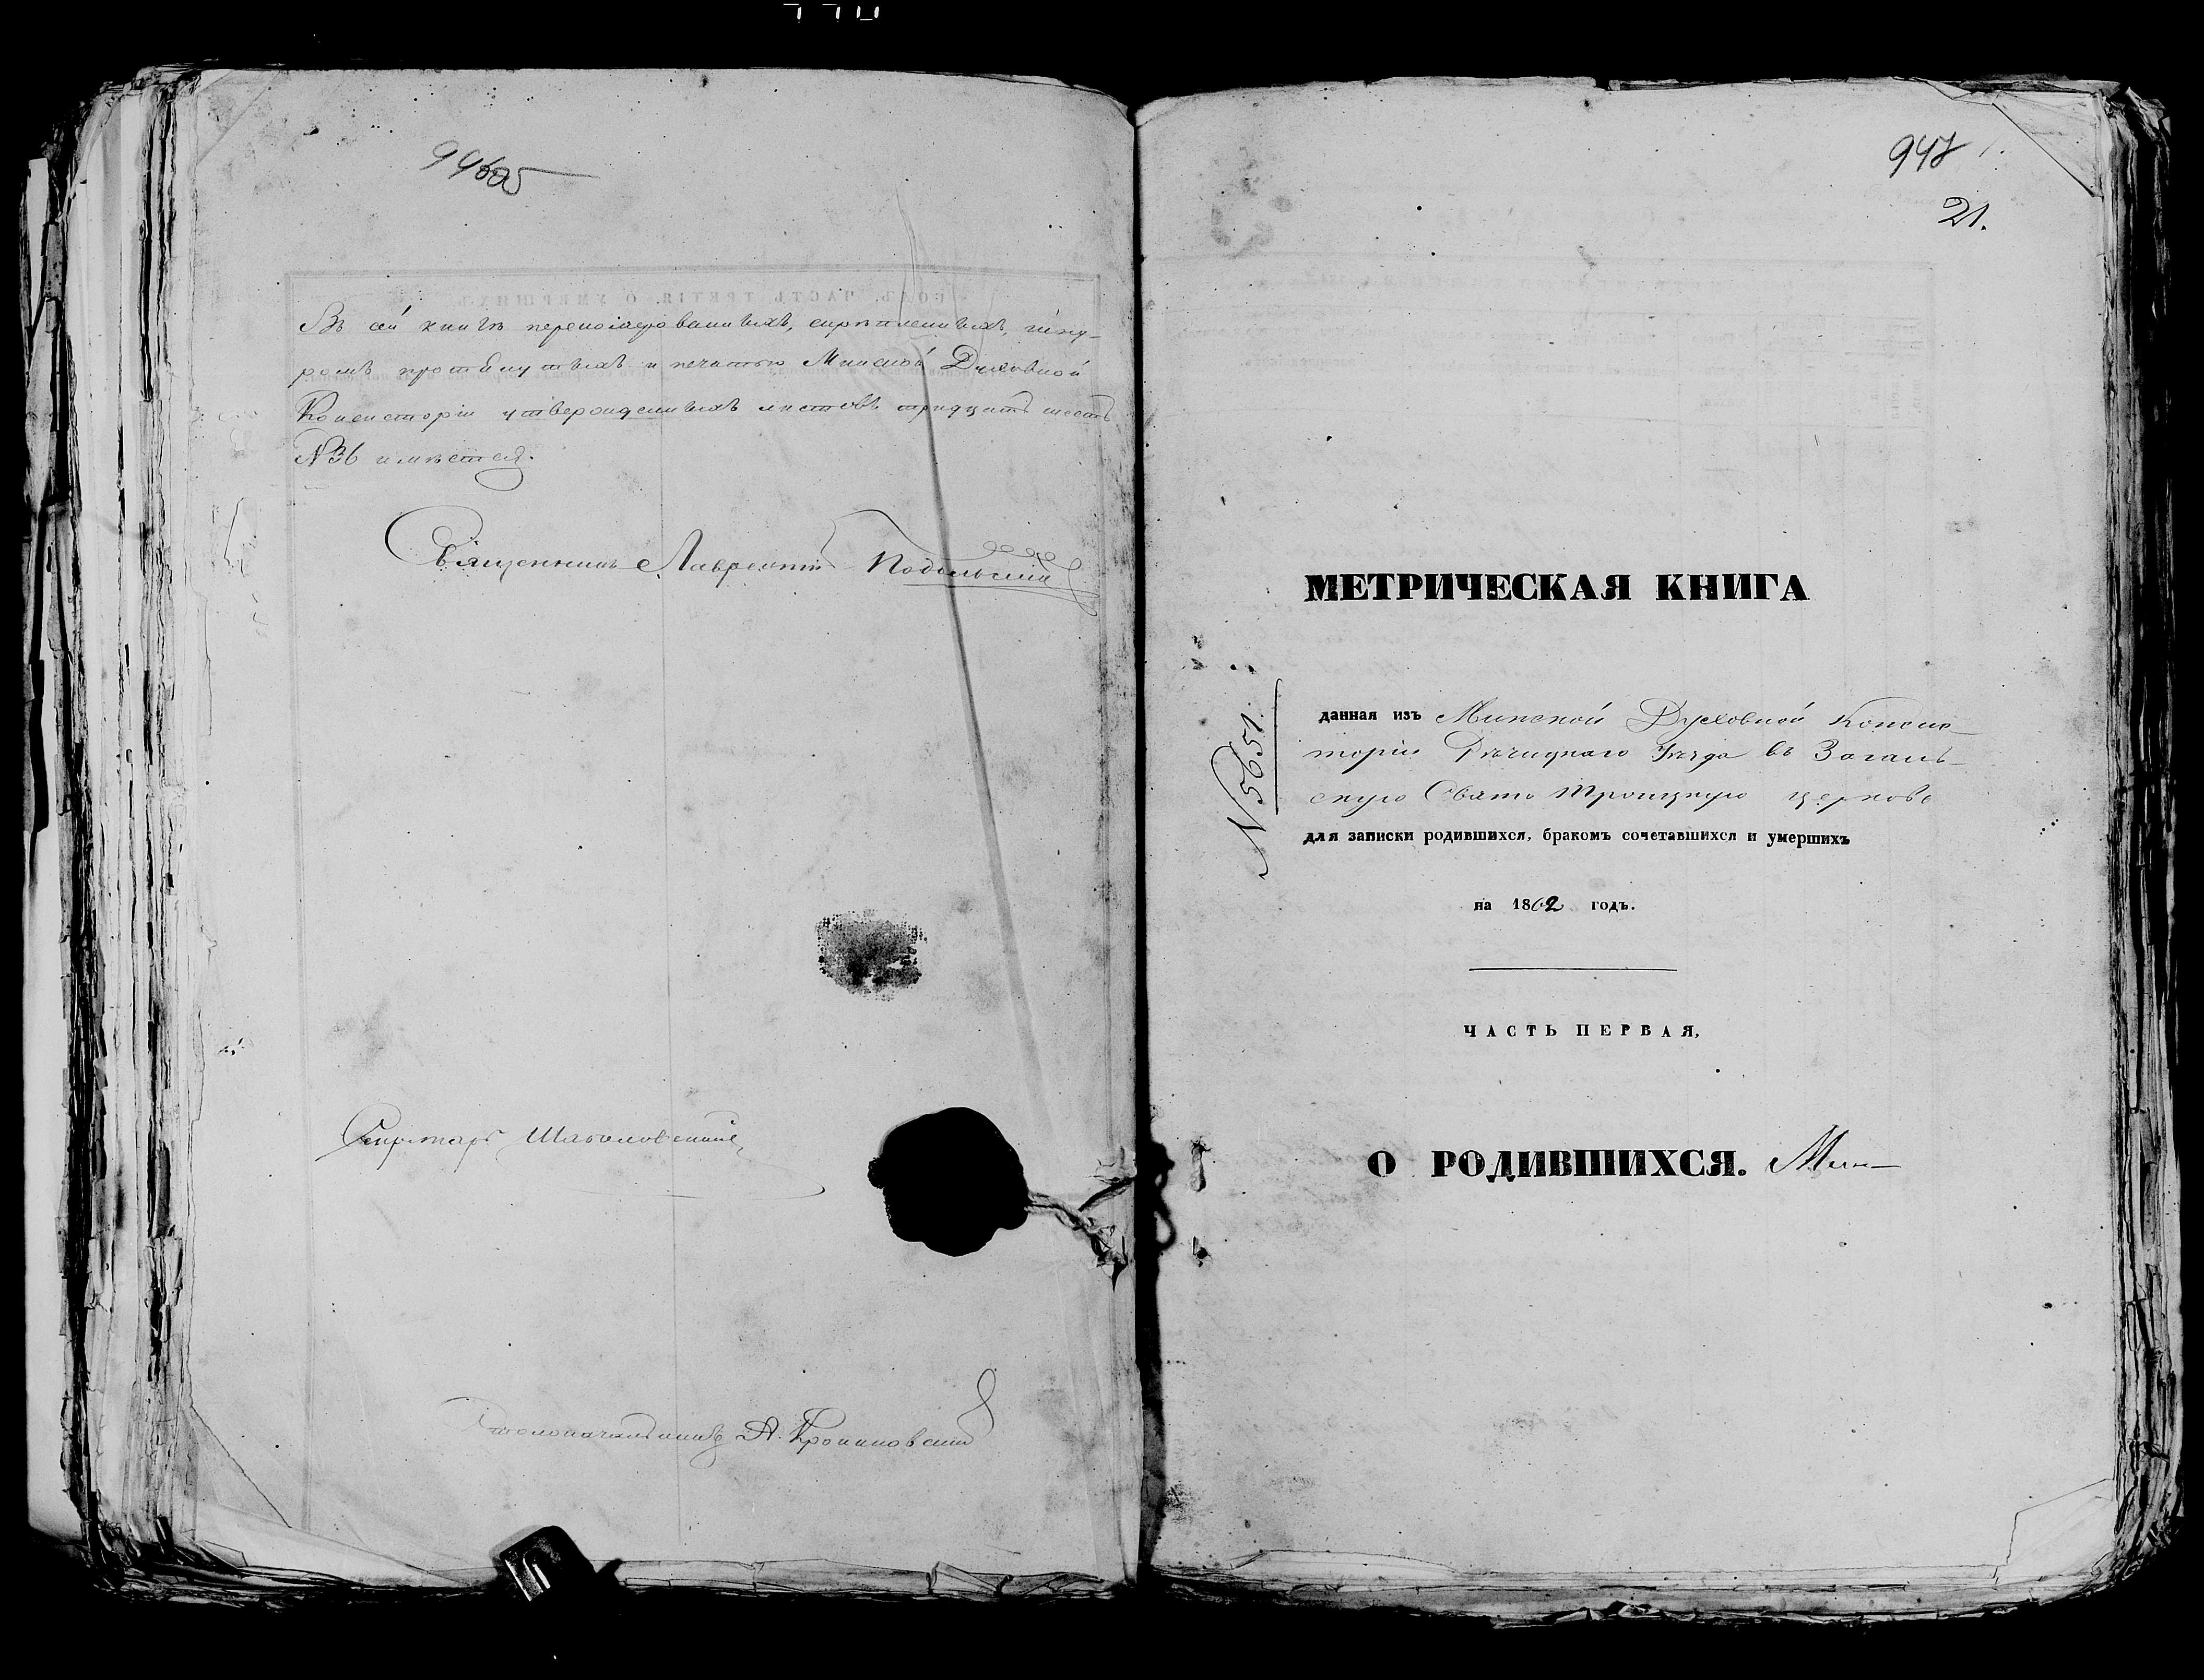 Въ сей книгѣ перенумерованныхъ, скрѣпленныхъ, шну-
ромъ протянутыхъ и печатью Минской Духовной
Консисторіи утвержденныхъ листовъ тридцать шесть
№36 имѣется.
Священникъ Лаврентій Подольскій
Секретарь
Столоначальникъ А.
21.
МЕТРИЧЕСКАЯ КНИГА
№ 5651.
данная изъ Минской Духовной Консис-
торіи Рѣчицкаго Уѣзда въ Загаль-
скую Свято Троицкую церковь
для записки родившихся, бракомъ сочетавшихся и умершихъ
на 1862 годъ.
ЧАСТЬ ПЕРВАЯ,
О РОДИВШИХСЯ. Мин-